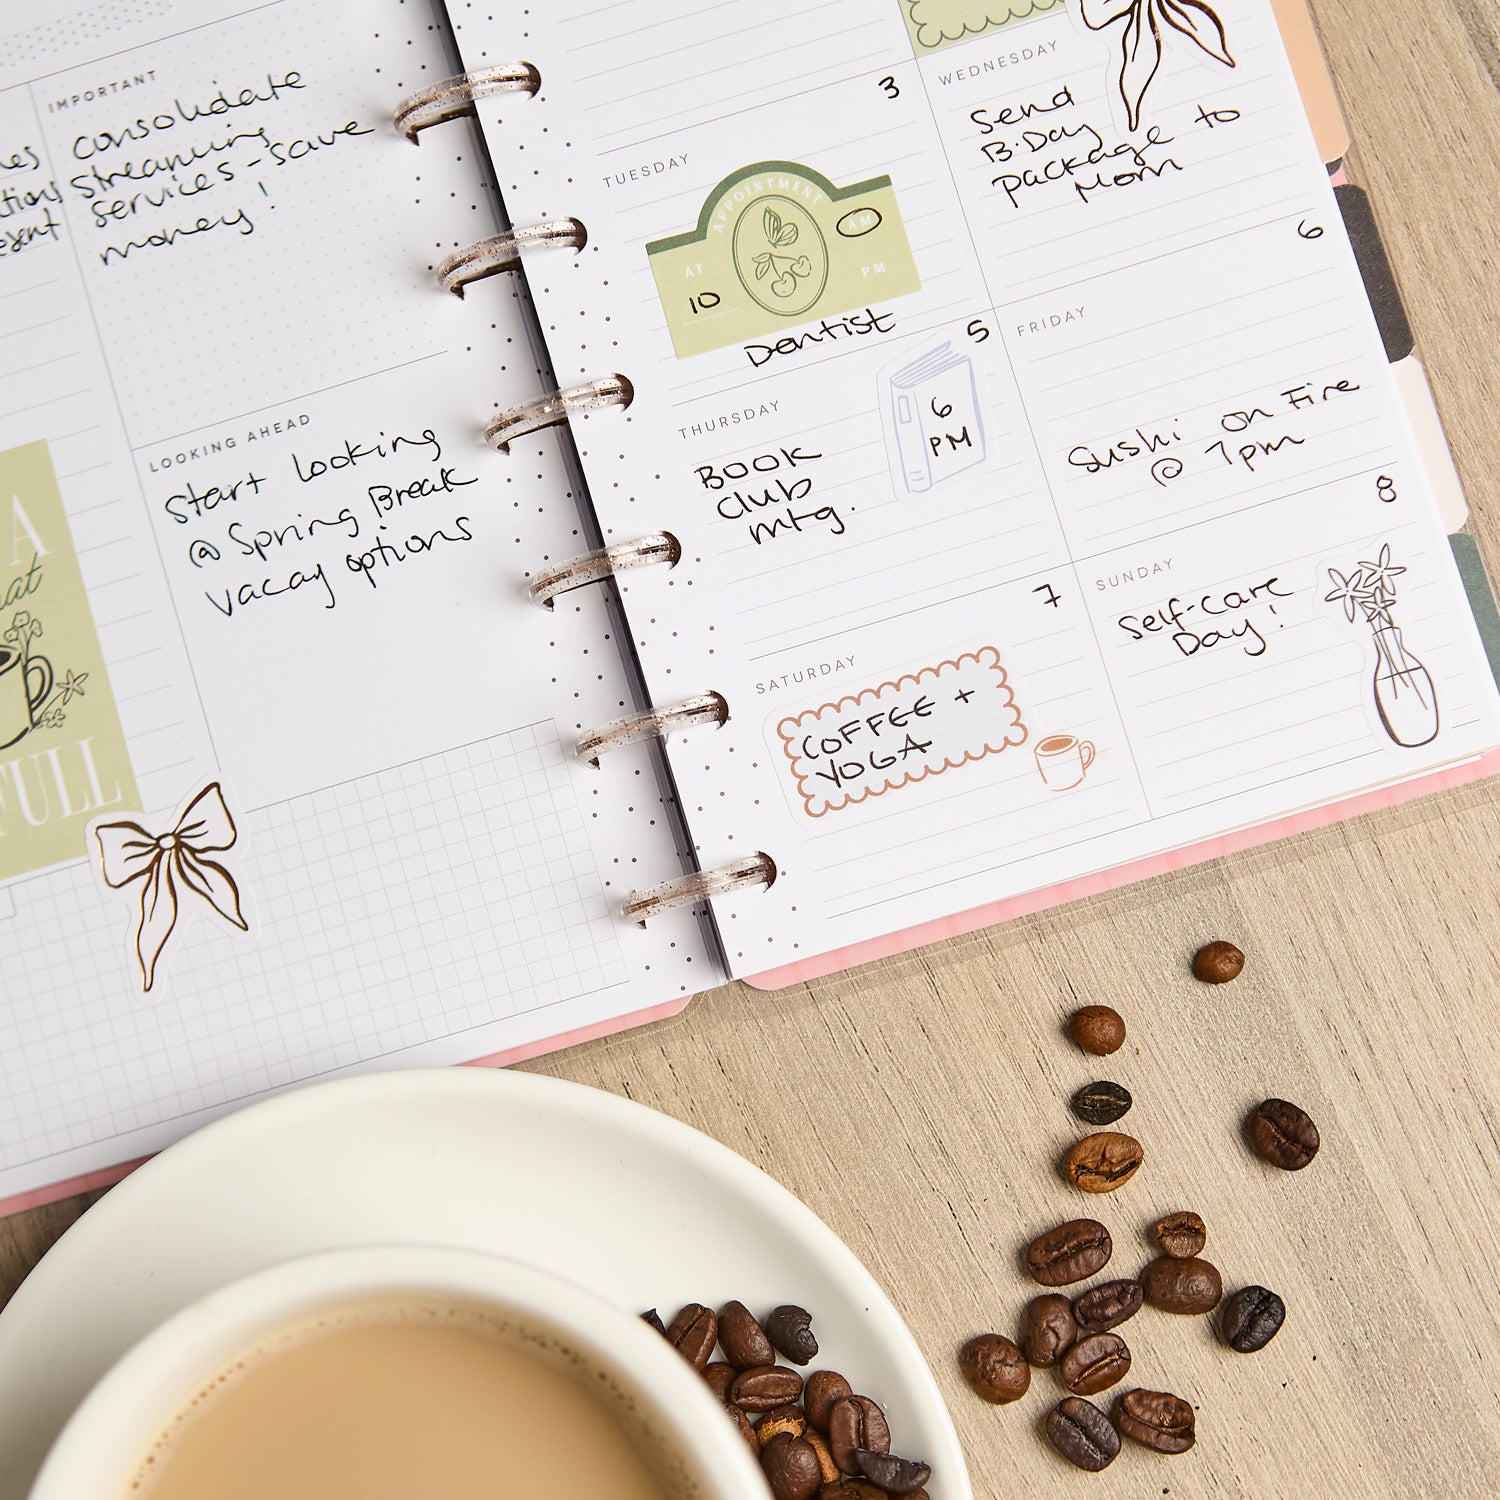 IMPORTANT
consolidate
streaming
services - save
money!
LOOKING AHEAD
start looking
@ Spring Break
vacay options
A
FULL
3
TUESDAY
APPOINTMENT
AT
10
AM
PM
Dentist
WEDNESDAY
Send
B-Day
package to
Mom
5
THURSDAY
Book
Club
mtg.
6
PM
6
FRIDAY
Sushi on Fire
@ 7pm
7
SATURDAY
COFFEE +
YOGA
8
SUNDAY
Self-Care
Day!